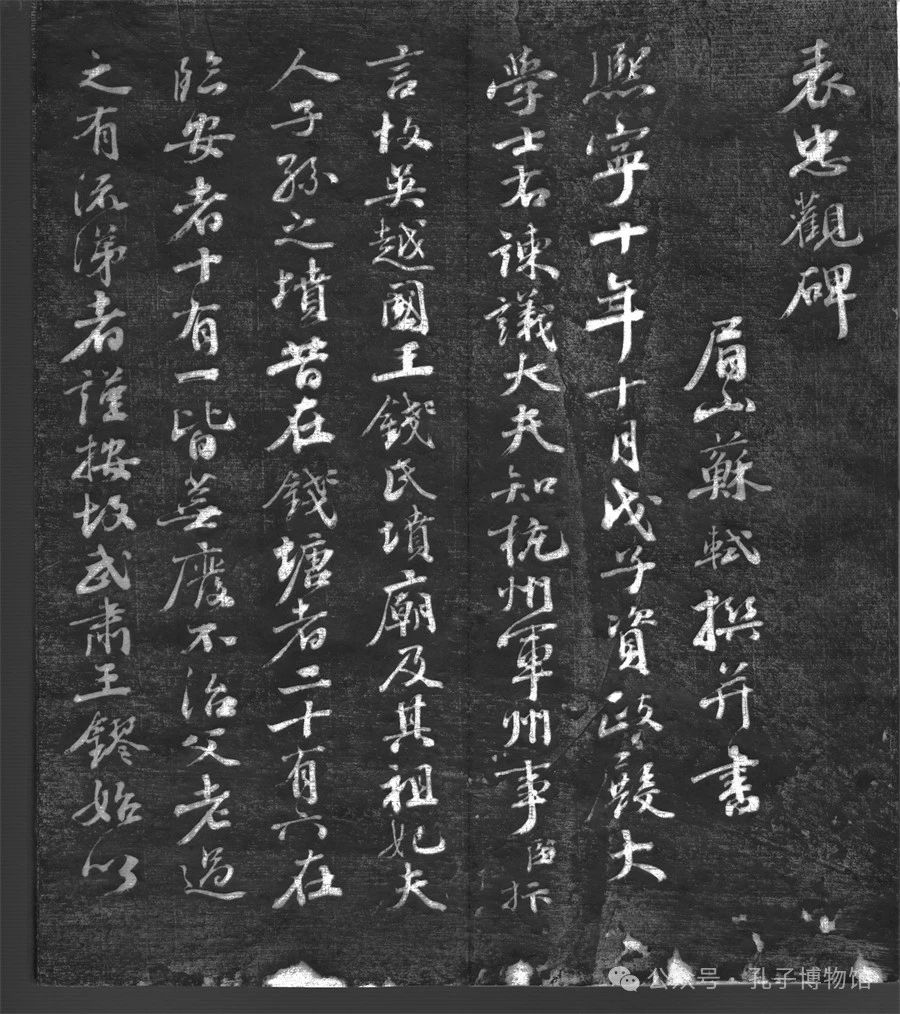 表忠觀碑
眉山蘇軾撰并書
熙寧十年十月戊子資政殿大
學士右諫議大夫知杭州軍州事臣抃
言故吳越國王錢氏墳廟及其祖妃夫
人子孫之墳昔在錢塘者二十有六在
臨安者十有一皆蕪廢不治父老過
之有流涕者謹按故武肅王鏐始以
公众号·孔子博物馆